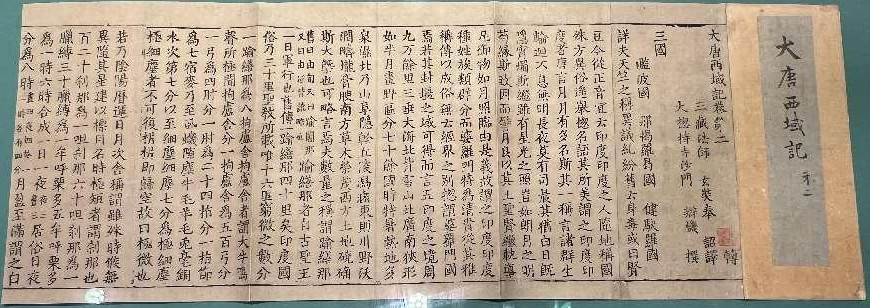 大唐西域記 卷二
大唐西域記卷第二
三藏法師 玄奘奉 詔譯
大總持寺沙門 辯機 撰
三國
濫波國 那揭羅曷國 健馱邏國
詳夫天竺之稱異議糺紛舊云身毒或曰賢
豆今從正音宜云印度印度之人隨地稱國
殊方異俗遙舉總名語其所美謂之印度印
度者唐言月月有多名斯其一稱言諸群生
輪迴不息無明長夜莫有司晨其猶白日既
隱宵燭斯繼雖有星光之照豈如朗月之明
苟緣斯致因而譬月良以其土聖賢繼軌導
凡御物如月照臨由是義故謂之印度印度
種姓族類群分而婆羅門特為清貴從其雅
稱傳以成俗無云經界之別總謂婆羅門國
焉若其封疆之域可得而言五印度之境周
九万餘里三垂大海北背雪山北廣南狹形
如半月畫野區分七十餘國時特暑熱地多
泉濕北乃山阜隱軫丘陵舄鹵東則川野沃
潤疇隴膏腴南方草木榮茂西方土地磽确
斯大概也可略言焉夫數量之稱謂踰繕那
舊曰由旬又曰踰闍那又曰由延皆訛略也踰繕那者自古聖王
一日軍行也舊傳一踰繕那四十里矣印度國
俗乃三十里聖教所載唯十六里窮微之數分
一踰繕那為八拘盧舍拘盧舍者謂大牛鳴
聲所極聞稱拘盧舍分一拘盧舍為五百弓分
一弓為四肘分一肘為二十四指分一指節
為七宿麥乃至虱蟣隙塵牛毛羊毛兔毫銅
水次第七分以至細塵細塵七分為極細塵
極細塵者不可復析析即歸空故曰極微也
若乃陰陽曆運日月次舍稱謂雖殊時候無
異隨其星建以標月名時極短者謂剎那也
百二十剎那為一呾剎那六十呾剎那為一
臘縛三十臘縛為一牟呼栗多五牟呼栗多
為一時六時合成一日一夜晝三夜三居俗日夜
分為八時晝四夜四於一一時各有四分月盈至滿謂之白